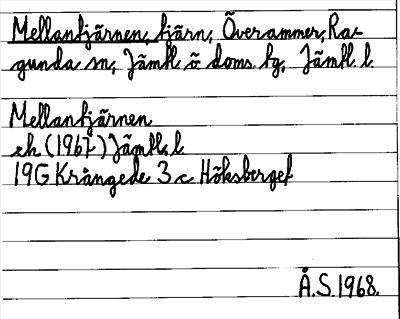 Mellantjärnen, tjärn, Överammer, Ra-
gunda sn, Jämtl. ö doms. tg, Jämtl. l
Mellantjärnen
ek (1967) Jämtl. l
19G Krångede 3 c Höksberget
Å.S. 1968.